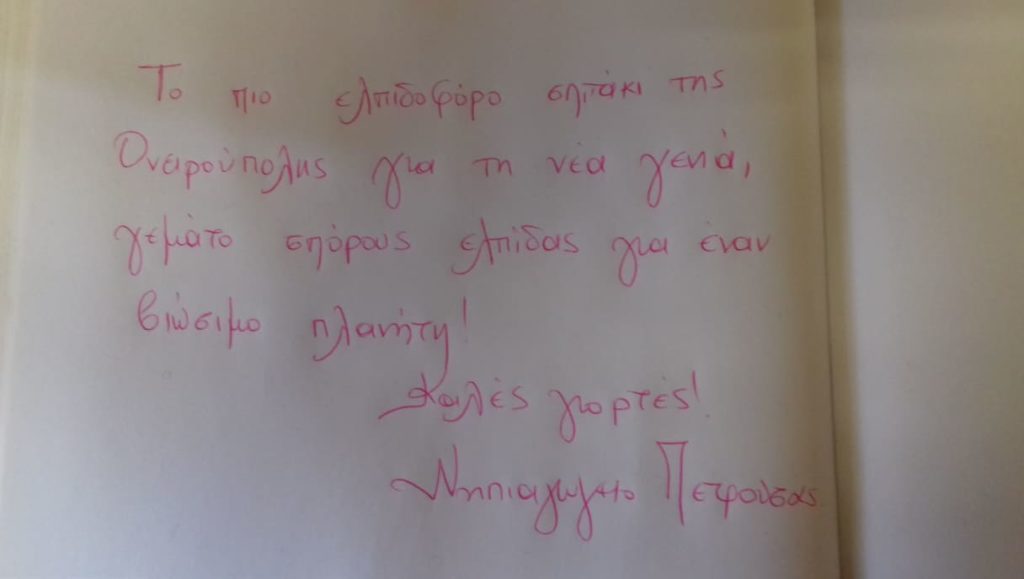 Το πιο ελπιδοφόρο σπιτάκι της
Ονειρούπολης για τη νέα γενιά,
γεμάτο σπόρους ελπίδας για έναν
βιώσιμο πλανήτη!
Καλές γιορτές!
Νηπιαγωγείο Πετρούσας